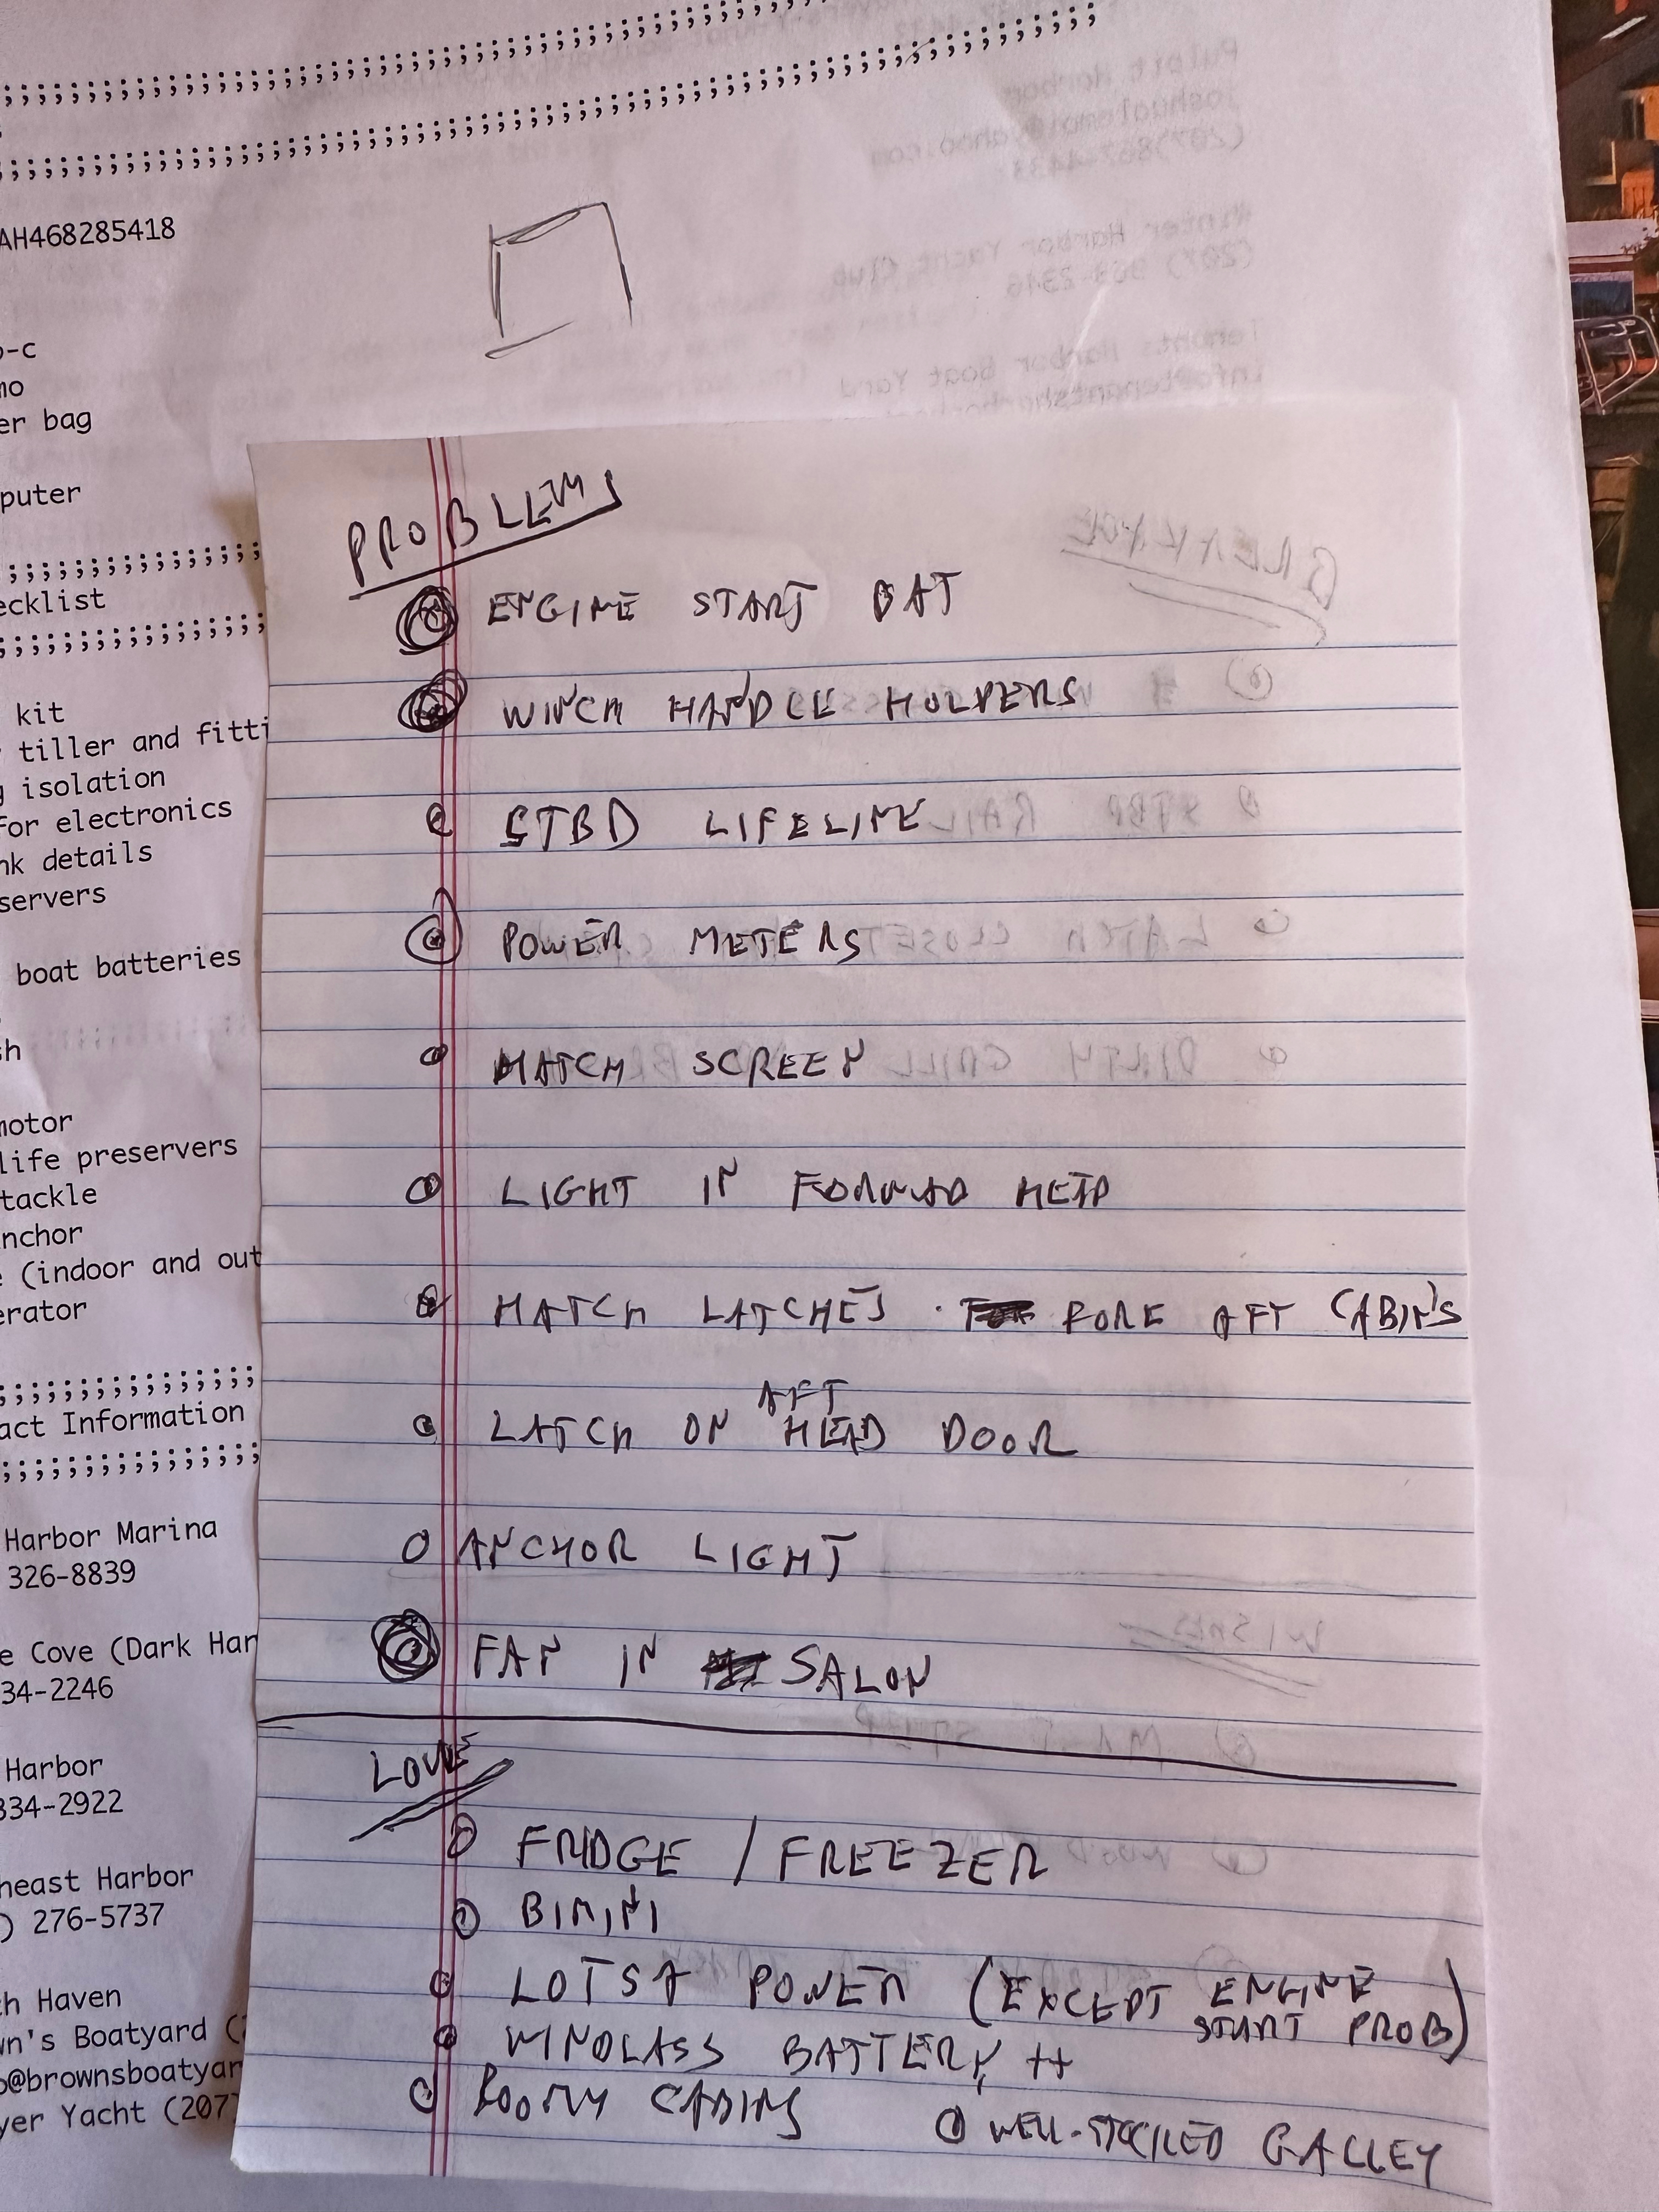 ;;;;;;;;;;;;;;;;;;;;;;;;;;;;;;;;;;;;;;;;;;;;;;
;;;;;;;;;;;;;;;;;;;;;;;;;;;;;;;;;;;;;;;;;;;;;;
AH468285418
o-c
mo
er bag
puter
;;;;;;;;;;;;;;;;
ecklist
;;;;;;;;;;;;;;;;
kit
tiller and fitti
g isolation
for electronics
nk details
servers
boat batteries
sh
motor
life preservers
tackle
nchor
e (indoor and out
erator
;;;;;;;;;;;;;;;;
act Information
;;;;;;;;;;;;;;;;
Harbor Marina
326-8839
e Cove (Dark Har
34-2246
Harbor
334-2922
heast Harbor
) 276-5737
h Haven
wn's Boatyard (
o@brownsboatyar
yer Yacht (207
PROBLEMS
ENGINE START BAT
WINCH HANDLE HOLDERS
STBD LIFELINE
POWER METERS
HATCH SCREEN
LIGHT IN FORWAD HEAD
HATCH LATCHES · FORE AFT CABINS
LATCH ON AFT HEAD DOOR
ANCHOR LIGHT
FAN IN SALON
LOVE
FRIDGE / FREEZER
BIMINI
LOTSA POWER (EXCEPT ENGINE START PROB)
WINDLASS BATTERY ++
ROOMY CABINS
WELL-STOCKED GALLEY